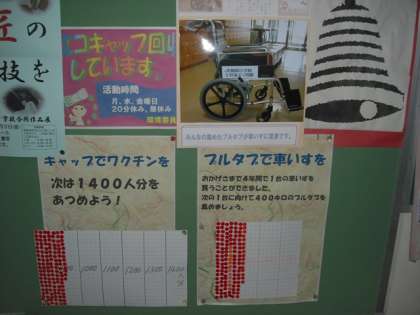 匠の
技を
エコキャップ回収
しています。
活動時間
月、水、金曜日
20分休み、昼休み
環境委員
みんなの集めたプルタブが車いすに変身です。
キャップでワクチンを
次は1400人分を
あつめよう！
1000 1100 1200 1300 1400
プルタブで車いすを
おかげさまで4年間で1台の車いすを
買うことができました。
次の1台に向けて400キロのプルタブを
集めましょう。